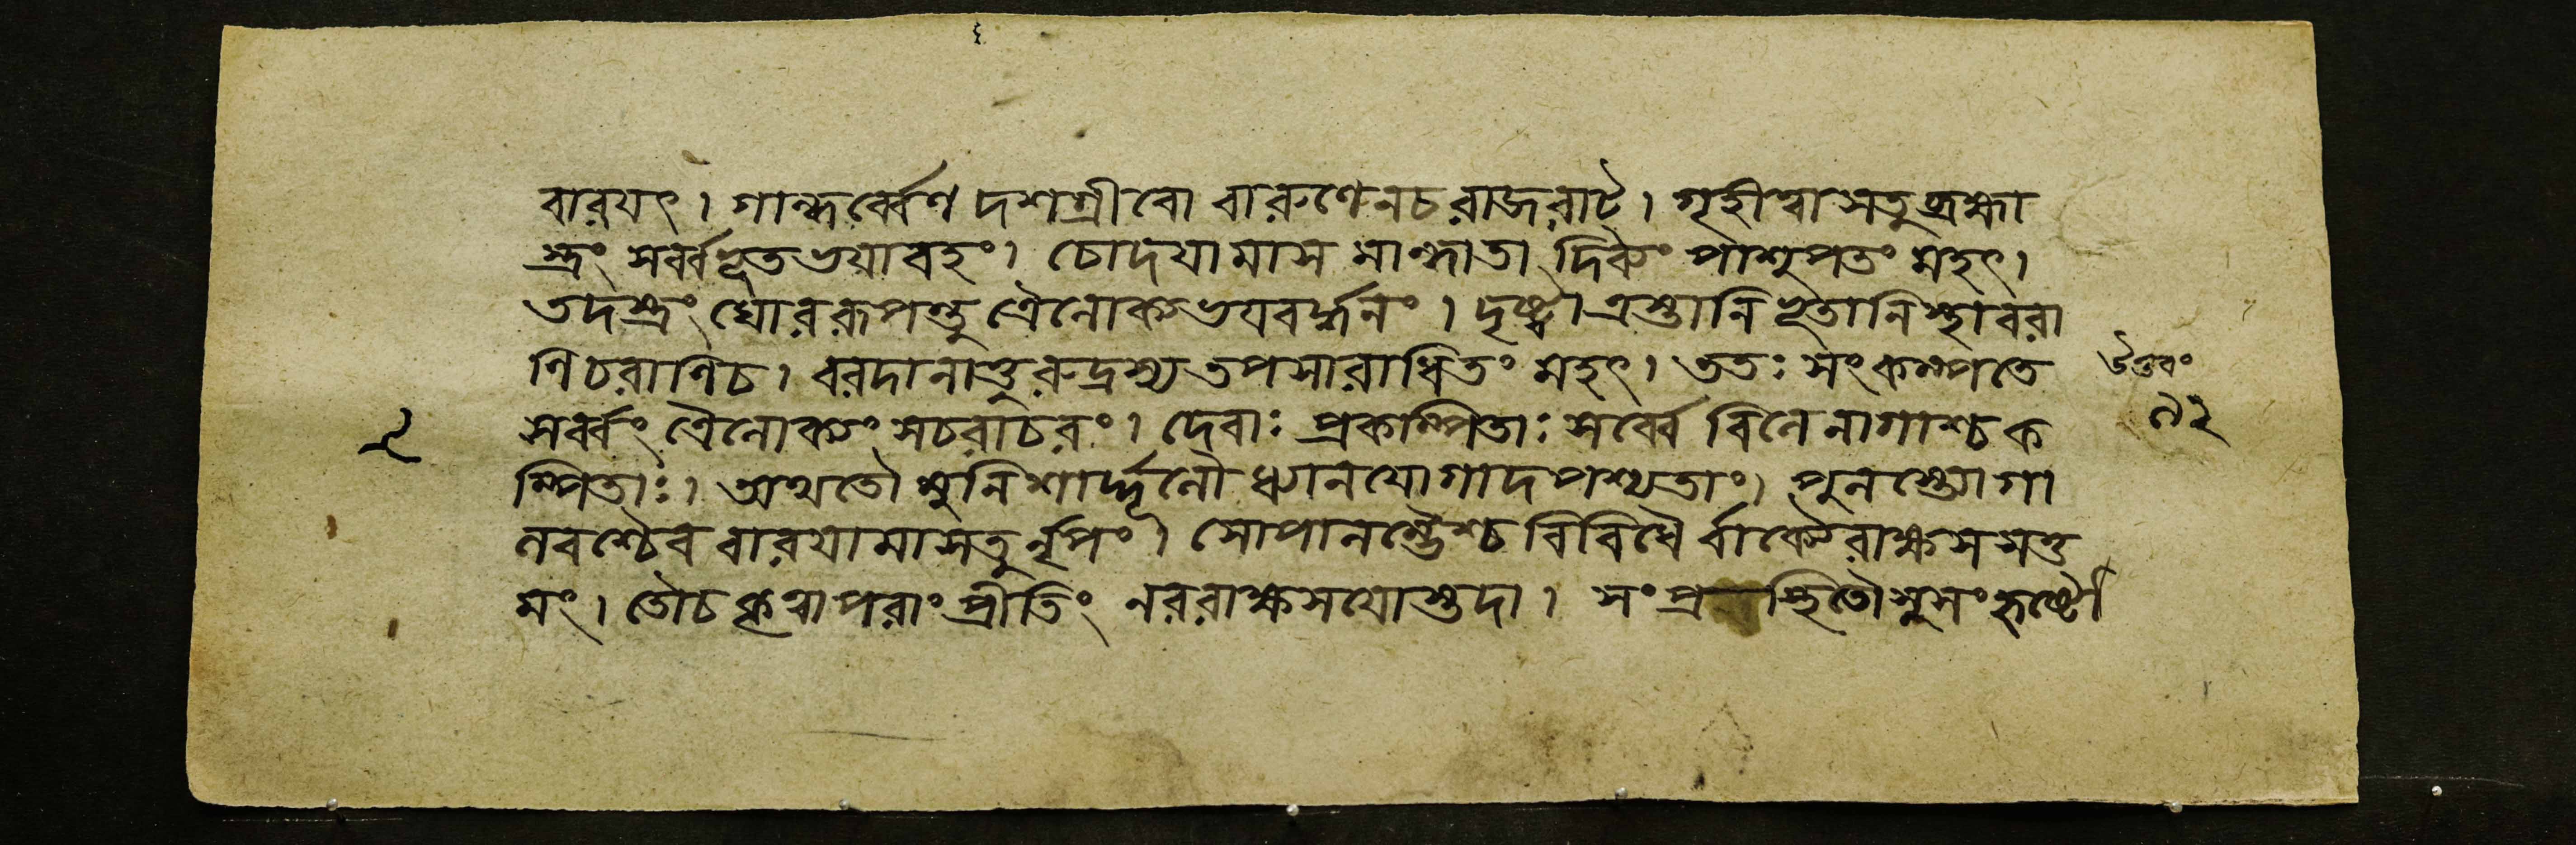 বারযৎ। গান্ধর্ব্বেণ দশগ্রীবো বারুণেন চ রাজরাট্। গৃহীত্বা স তু ব্রহ্মা
স্ত্রং সর্ব্বভূতভয়াবহং। চোদযামাস মান্ধাতা দিব্যং পাশুপতং মহৎ।
তদস্ত্রং ঘোররূপন্তু ত্রৈলোক্যভযবর্দ্ধনং। দৃষ্ট্বা ত্রস্তানি ভূতানি স্থাবরা
ণি চরাণি চ। বরদানাত্তু রুদ্রস্য তপসারাধিতং মহৎ। ততঃ সংকম্পতে
সর্ব্বং ত্রৈলোক্যং সচরাচরং। দেবাঃ প্রকম্পিতাঃ সর্ব্বে বিলে নাগাশ্চ ক
ম্পিতাঃ। অথ তৌ মুনিশার্দ্দূলৌ ধ্যানযোগাদপশ্যতাং। পুলস্ত্যো গা
লবশ্চৈব বারযামাসতুর্নৃপং। সোপালম্ভৈশ্চ বিবিধৈর্বাক্যৈ রাক্ষসসত্ত
মং। তৌ চ কৃত্বা পরাং প্রীতিং নররাক্ষসযোস্তদা। সংপ্রস্থিতৌ সুসংহৃষ্টৌ
উত্তরং
৯২